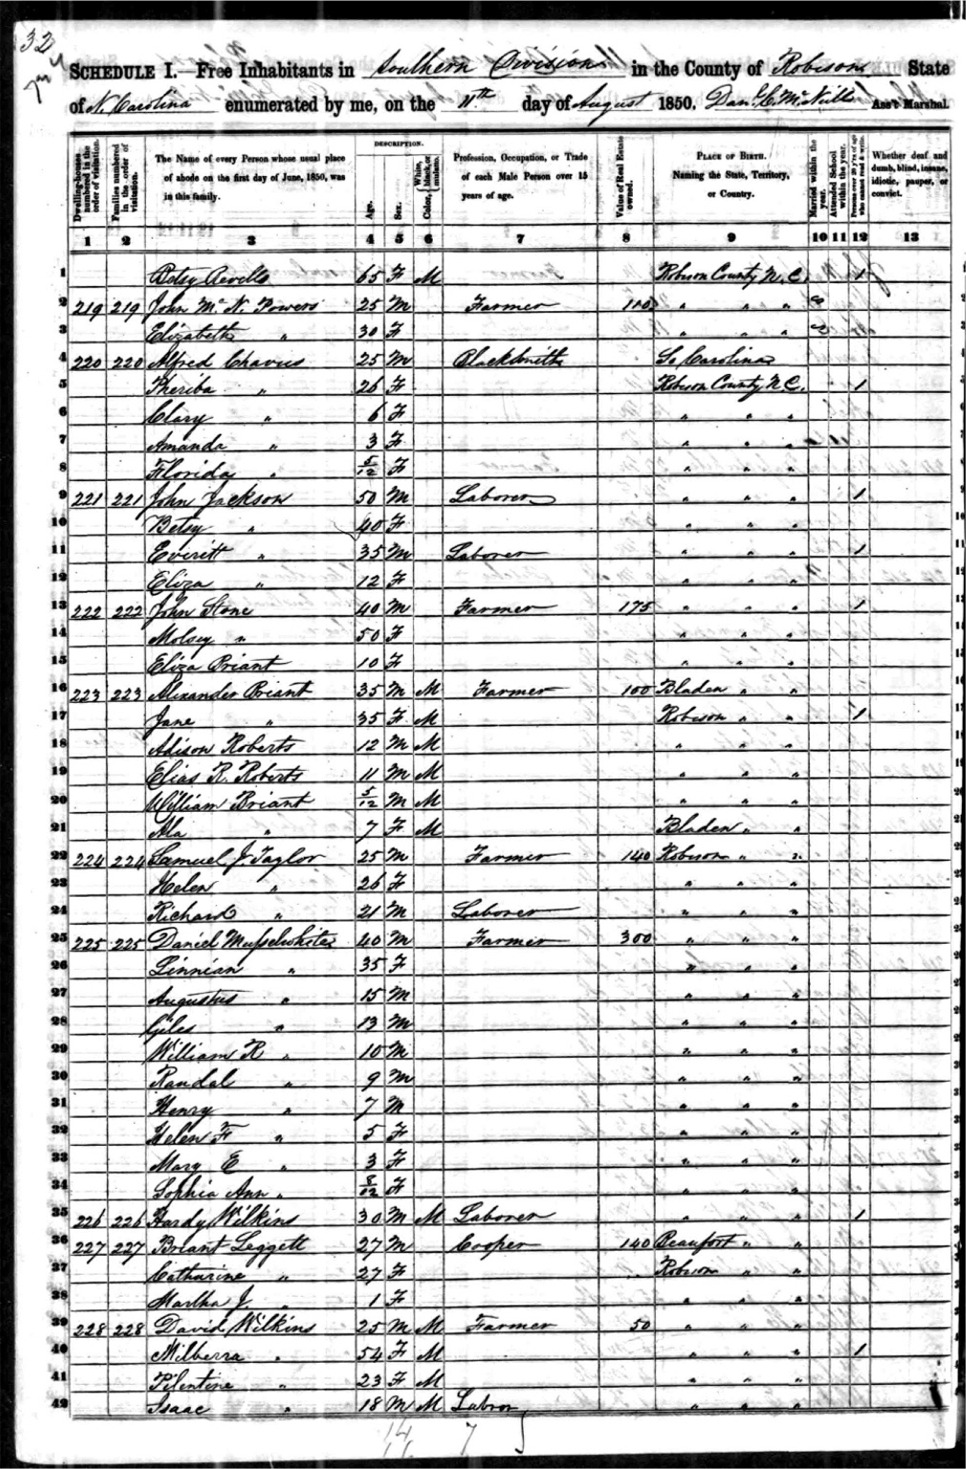 32
SCHEDULE I.—Free Inhabitants in Southern Division in the County of Robison State
of N. Carolina enumerated by me, on the 11th day of August 1850. Dan. C. McNeill Ass't Marshal.
Dwelling-houses numbered in the order of visitation.
Families numbered in the order of visitation.
The Name of every Person whose usual place of abode on the first day of June, 1850, was in this family.
DESCRIPTION.
Age.
Sex.
Color, White, black, or mulatto.
Profession, Occupation, or Trade of each Male Person over 15 years of age.
Value of Real Estate owned.
PLACE OF BIRTH. Naming the State, Territory, or Country.
Married within the year.
Attended School within the year.
Persons over 20 y'rs of age who cannot read & write.
Whether deaf and dumb, blind, insane, idiotic, pauper, or convict.
1 2 3 4 5 6 7 8 9 10 11 12 13
1 Betsy Revells 65 F M Robison County N. C. 1
2 219 219 John Mc N. Powers 25 M Farmer " " "
3 Elizabeth " 30 F " " "
4 220 220 Alfred Chavis 25 M Blacksmith So Carolina
5 Theriba " 26 F Robison County N. C. 1
6 Clary " 6 F " " "
7 Amanda " 3 F " " "
8 Florida " 5/12 F " " "
9 221 221 John Jackson 50 M Laborer " " " 1
10 Betsy " 40 F " " "
11 Everitt " 35 M Laborer " " " 1
12 Eliza " 12 F " " "
13 222 222 John Stone 40 M Farmer 175 " " " 1
14 Molsey " 50 F " " "
15 Eliza Briant 10 F " " "
16 223 223 Alexander Briant 35 M M Farmer 100 Bladen " "
17 Jane " 35 F M Robison " " 1
18 Adison Roberts 12 M M " " "
19 Elias R. Roberts 11 M M " " "
20 William Briant 5/12 M M " " "
21 Ala " 7 F M Bladen " "
22 224 224 Samuel J Taylor 25 M Farmer 140 Robison " "
23 Helen " 26 F " " "
24 Richard " 21 M Laborer " " "
25 225 225 Daniel Musselwhite 40 M Farmer 300 " " "
26 Linnian " 35 F " " "
27 Augustus " 15 M " " "
28 Giles " 13 M " " "
29 William R " 10 M " " "
30 Randal " 9 M " " "
31 Henry " 7 M " " "
32 Helen F " 5 F " " "
33 Mary E " 3 F " " "
34 Sophia Ann " 8/12 F " " "
35 226 226 Hardy Wilkins 30 M M Laborer " " " 1
36 227 227 Briant Leggett 27 M Cooper 140 Beaufort " "
37 Catharine " 27 F Robison " "
38 Martha J. " 1 F " " "
39 228 228 David Wilkins 25 M M Farmer 50 " " "
40 Milberra " 54 F M " " " 1
41 Pilentine " 23 F M " " "
42 Isaac " 18 M M Labor " " "
14 7